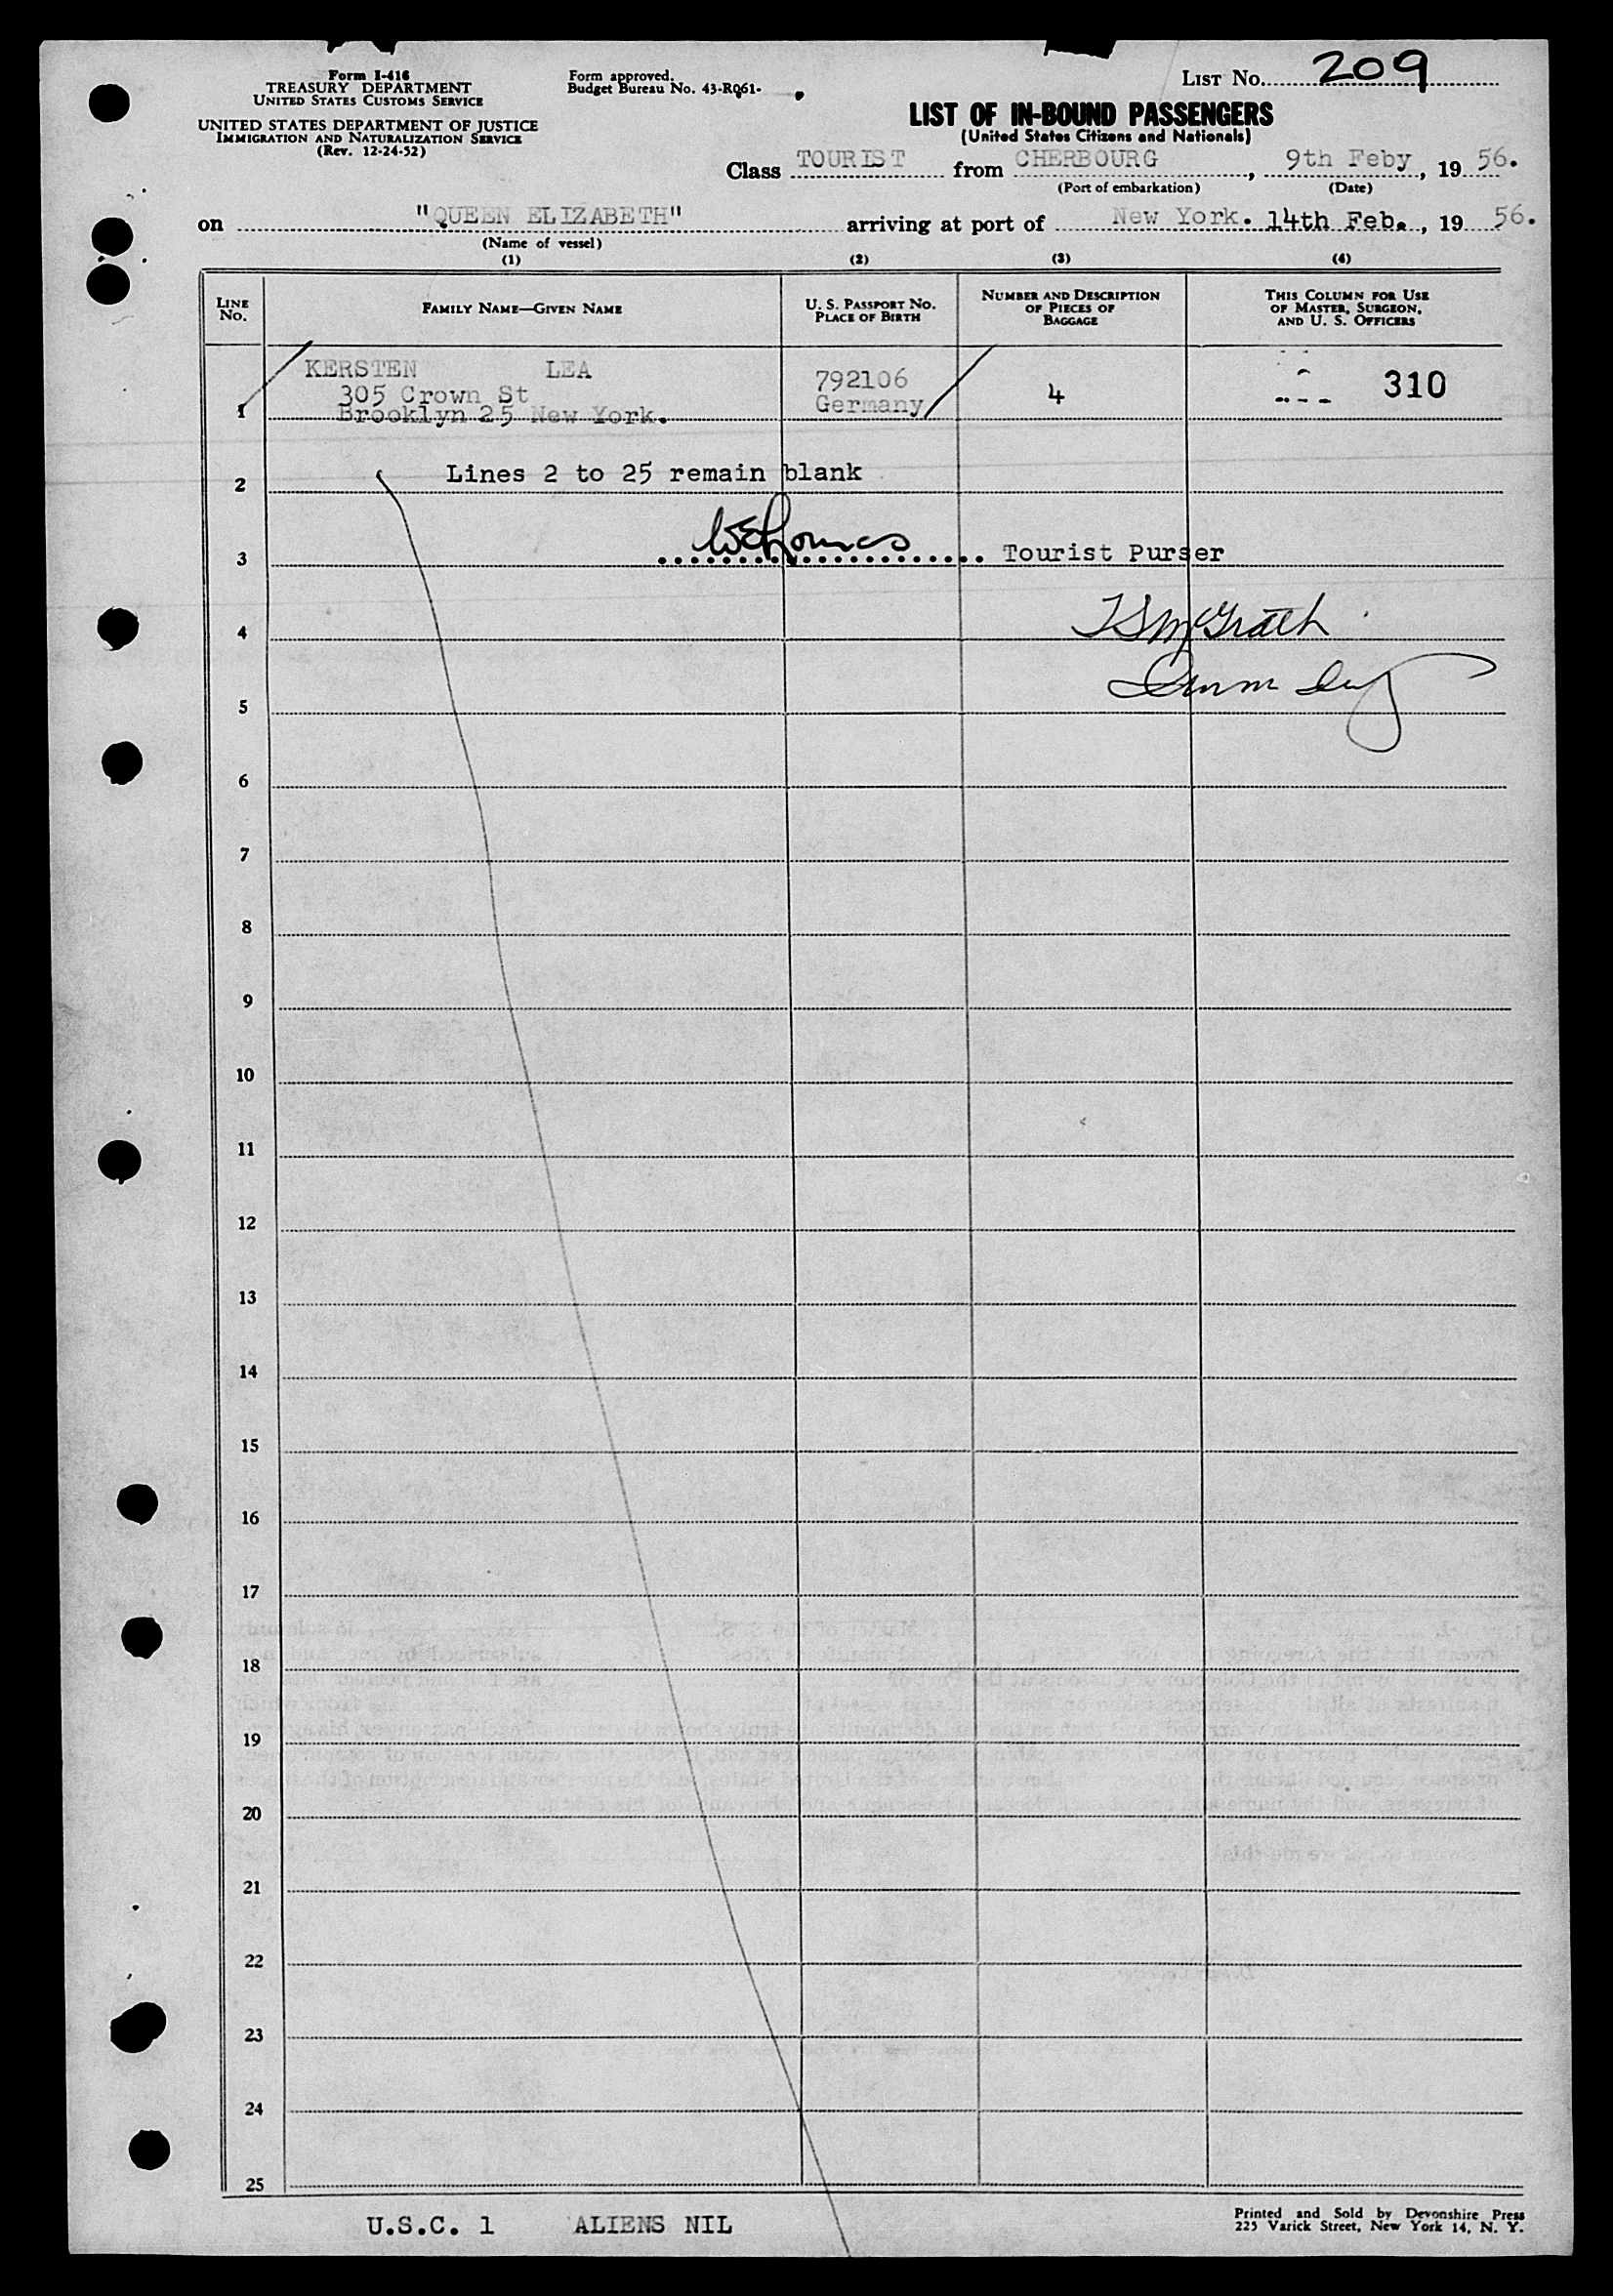 Form I-416
TREASURY DEPARTMENT
UNITED STATES CUSTOMS SERVICE
UNITED STATES DEPARTMENT OF JUSTICE
IMMIGRATION AND NATURALIZATION SERVICE
(Rev. 12-24-52)
Form approved.
Budget Bureau No. 43-R061-
LIST No. 209
LIST OF IN-BOUND PASSENGERS
(United States Citizens and Nationals)
Class TOURIST from CHERBOURG, 9th Feby, 19 56.
(Port of embarkation) (Date)
on "QUEEN ELIZABETH" arriving at port of New York. 14th Feb., 19 56.
(Name of vessel)
(1) (2) (3) (4)
LINE No. FAMILY NAME—GIVEN NAME U. S. PASSPORT NO. PLACE OF BIRTH NUMBER AND DESCRIPTION OF PIECES OF BAGGAGE THIS COLUMN FOR USE OF MASTER, SURGEON, AND U. S. OFFICERS
KERSTEN LEA 792106 4 310
305 Crown St Germany
1 Brooklyn 25 New York.
2 Lines 2 to 25 remain blank
3 Tourist Purser
4 McGrath
5
6
7
8
9
10
11
12
13
14
15
16
17
18
19
20
21
22
23
24
25
U.S.C. 1 ALIENS NIL
Printed and Sold by Devonshire Press
225 Varick Street, New York 14, N. Y.